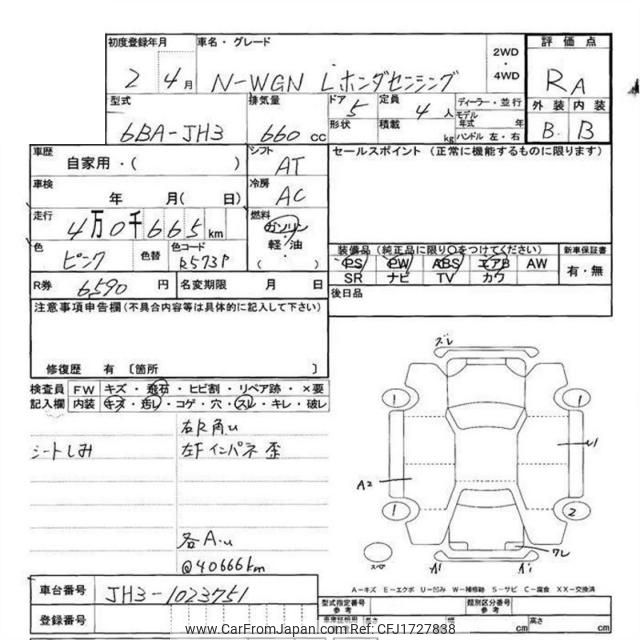 初度登録年月 車名・グレード 2WD・4WD 評価点
2 4月 N-WGN Lホンダセンシング RA
型式 排気量 ドア 5 定員 4人 ディーラー・並行 外装 内装
6BA-JH3 660cc 形状 積載 kg モデル年式 年 ハンドル 左・右 B B
車歴 自家用・( ) シフト AT セールスポイント (正常に機能するものに限ります)
車検 年 月( 日) 冷房 AC
走行 4万0千665km 燃料 ガソリン 軽・油 ( )
色 ピンク 色替 色コード R573P
装備品 (純正品に限り○をつけてください) 新車保証書
PS PW ABS エアB AW 有・無
SR ナビ TV カワ
R券 6590円 名変期限 月 日 後日品
注意事項申告欄(不具合内容等は具体的に記入して下さい)
修復歴 有 〔箇所 〕
検査員記入欄 FW キズ・飛石・ヒビ割・リペア跡・×要
内装 キズ・汚レ・コゲ・穴・スレ・キレ・破レ
右R角u
シートしみ 左F インパネ 歪
各A.u
@40666km
ズレ
1 1
U1
A2
1 2
スペ A1 A1 ワレ
A-キズ E-エクボ U-凹み W-補修跡 S-サビ C-腐食 XX-交換済
車台番号 JH3-1023751
登録番号
型式指定番号 参考 類別区分番号 参考
長さ cm 幅 cm 高さ cm
www.CarFromJapan.com Ref: CFJ1727838